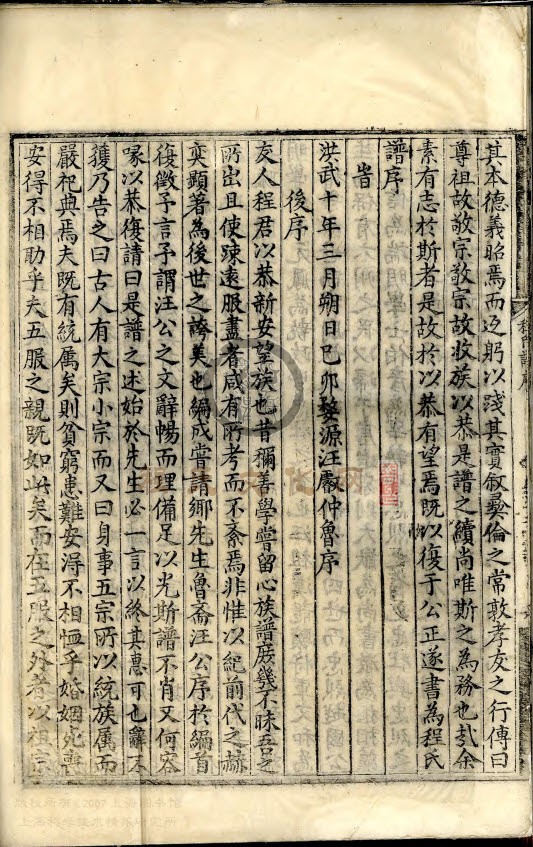 其本德義昭焉而返躬以踐其實叙彝倫之常敦孝友之行傳曰
尊祖故敬宗敬宗故收族以恭是譜之續尚唯斯之為務也哉余
素有志於斯者是故於以恭有望焉既以復于公正遂書為程氏
譜序
旹
洪武十年三月朔日己卯婺源汪叡仲魯序
後序
友人程君以恭新安望族也昔獮善學嘗留心族譜庶幾不昧吾之
所出且使疎遠服盡者咸有所考而不紊焉非惟以紀前代之赫
奕顯著為後世之誇美也編成嘗請鄉先生魯齋汪公序於編首
復徵予言予謂汪公之文辭暢而理備足以光斯譜不肖又何容
喙以恭復請曰是譜之述始於先生必一言以終其惠可也辭不
獲乃告之曰古人有大宗小宗而又曰身事五宗所以統族属而
嚴祀典焉夫既有統属矣則貧窮患難安得不相恤乎婚姻死喪
安得不相助乎夫五服之親既如此矣而在五服之外者以祖宗
程氏譜序
版权所有 2007 上海图书馆